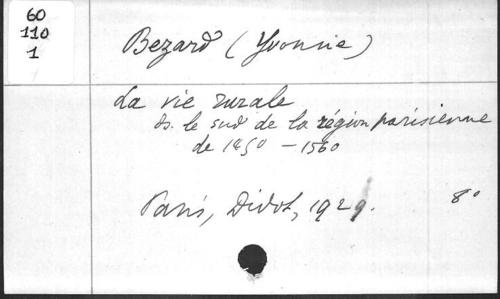 60
110
1
Bezard (Yvonne)
La vie rurale
ds. le sud de la région parisienne
de 1450 - 1560
Paris, Didot, 1929. 8°